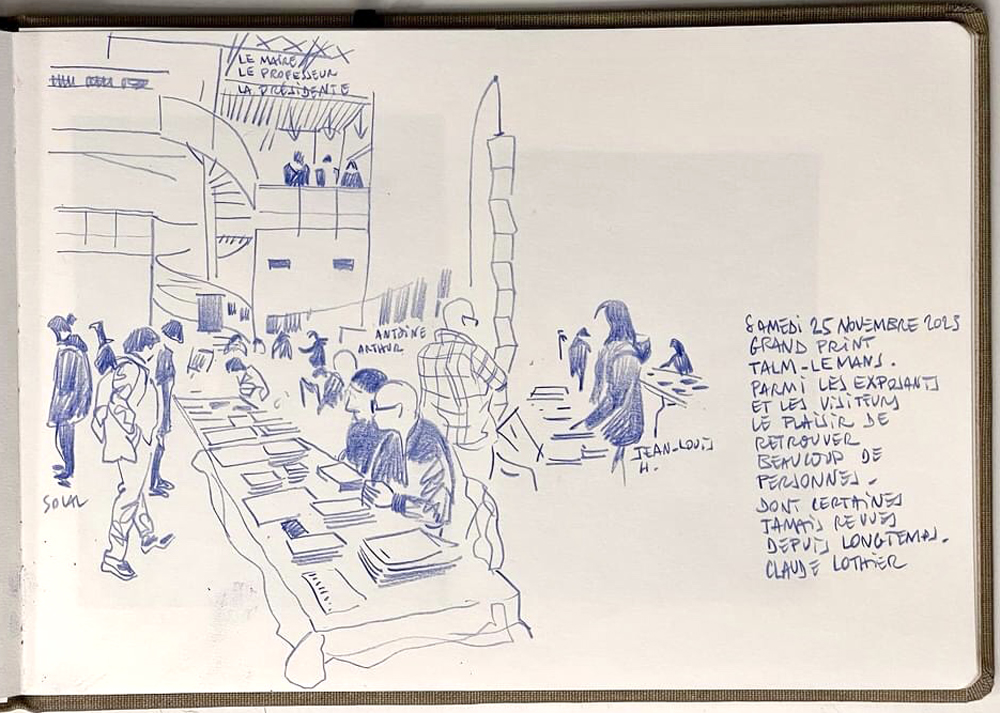 LE MAIRE
LE PROFESSEUR
LA PRÉSIDENTE
ANTOINE
ARTHUR
SOLAL
JEAN-LOUIS
H.
SAMEDI 25 NOVEMBRE 2023
GRAND PRINT
TALM-LE MANS.
PARMI LES EXPOSANTS
ET LES VISITEURS
LE PLAISIR DE
RETROUVER
BEAUCOUP DE
PERSONNES.
DONT CERTAINES
JAMAIS REVUES
DEPUIS LONGTEMPS.
CLAUDE LOTHIER